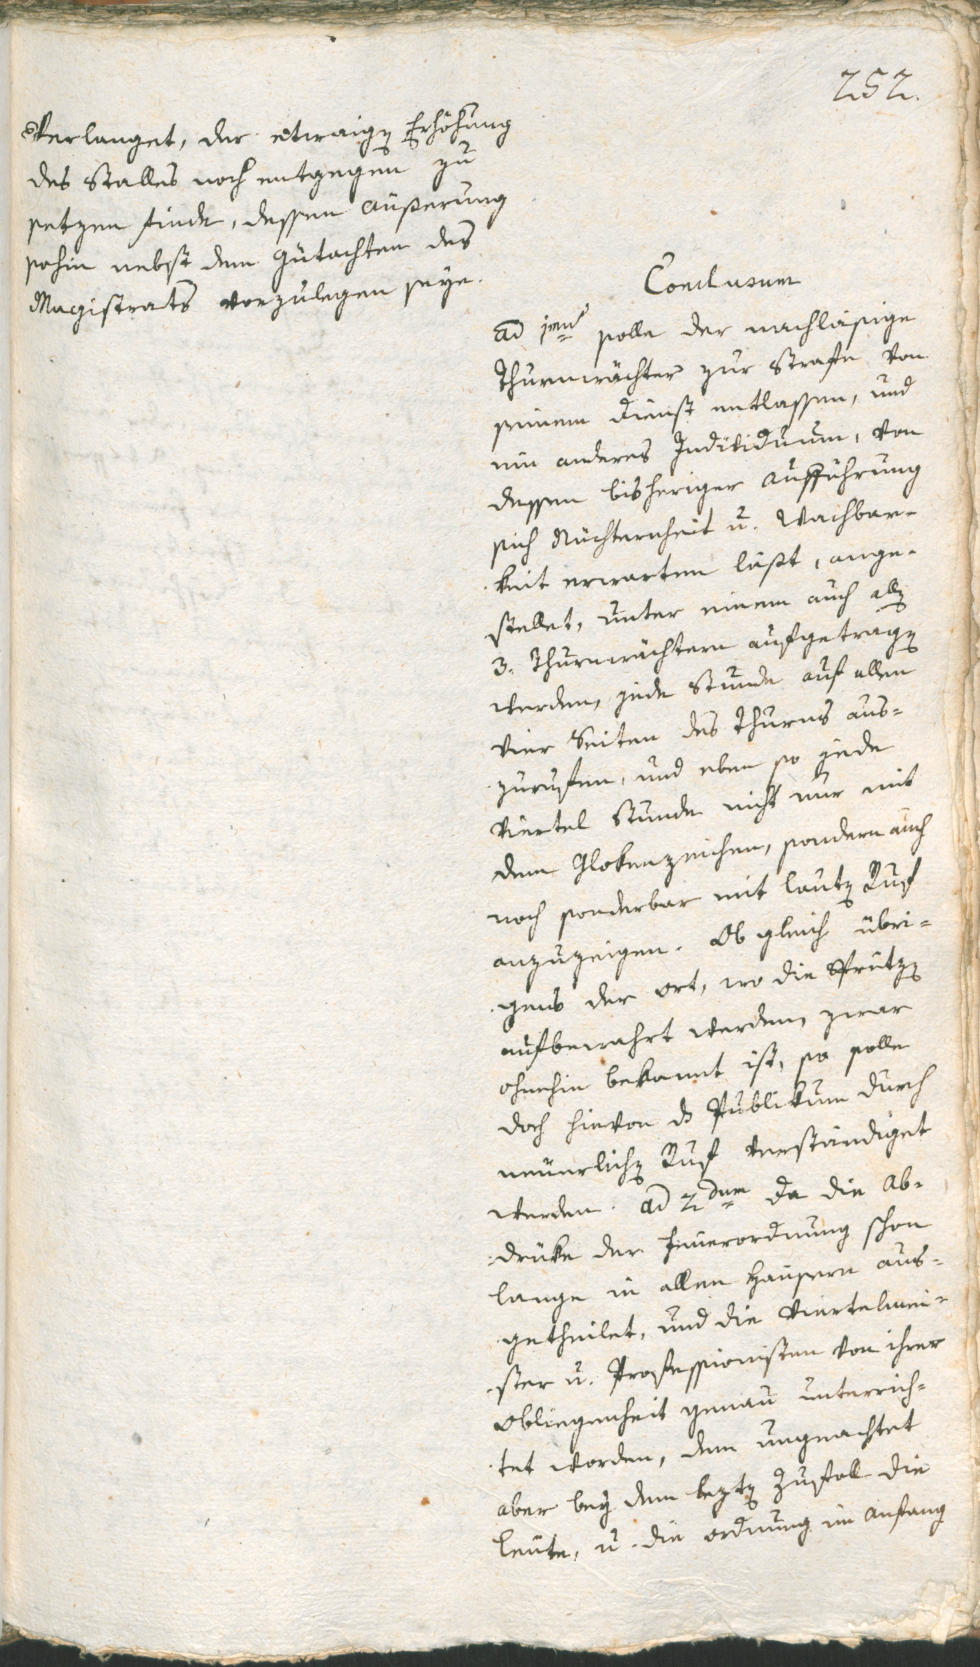 252.
Verlanget, der etwaigen Erhöhung
des Stalles noch entgegen zu
setzen finde, dessen Äußerung
sohin nebst dem Gutachten des
Magistrats vorzulegen seye.
Conclusum
ad 1mum solle der nachläßige
Thurmwächter zur Strafe von
seinem Dienst entlassen, und
ein anderes Individuum, von
dessen bisheriger Aufführung
sich Nüchternheit u. Wachbar-
keit erwarten läßt, ange-
stellet, unter einem auch allen
3. Thurmwächtern aufgetragen
werden, jede Stunde auf allen
vier Seiten des Thurms aus-
zurufen, und eben so jede
Viertel Stunde nicht nur mit
dem Glokenzeichen, sondern auch
noch sonderbar mit lauten Ruf
anzuzeigen. Ob gleich übri-
gens der Ort, wo die Spritzen
aufbewahrt werden, zwar
ohnehin bekannt ist, so solle
doch hievon das Publikum durch
neuerlichen Ruf verständiget
werden. ad 2dum Da die Ab-
drüke der Feuerordnung schon
lange in allen Häusern aus-
getheilet, und die Viertelmei-
ster u. Professionisten von ihrer
Obliegenheit genau unterrich-
tet worden, dem ungeachtet
aber bey dem lezten Zufall die
Leute, u. die Ordnung im Anfang